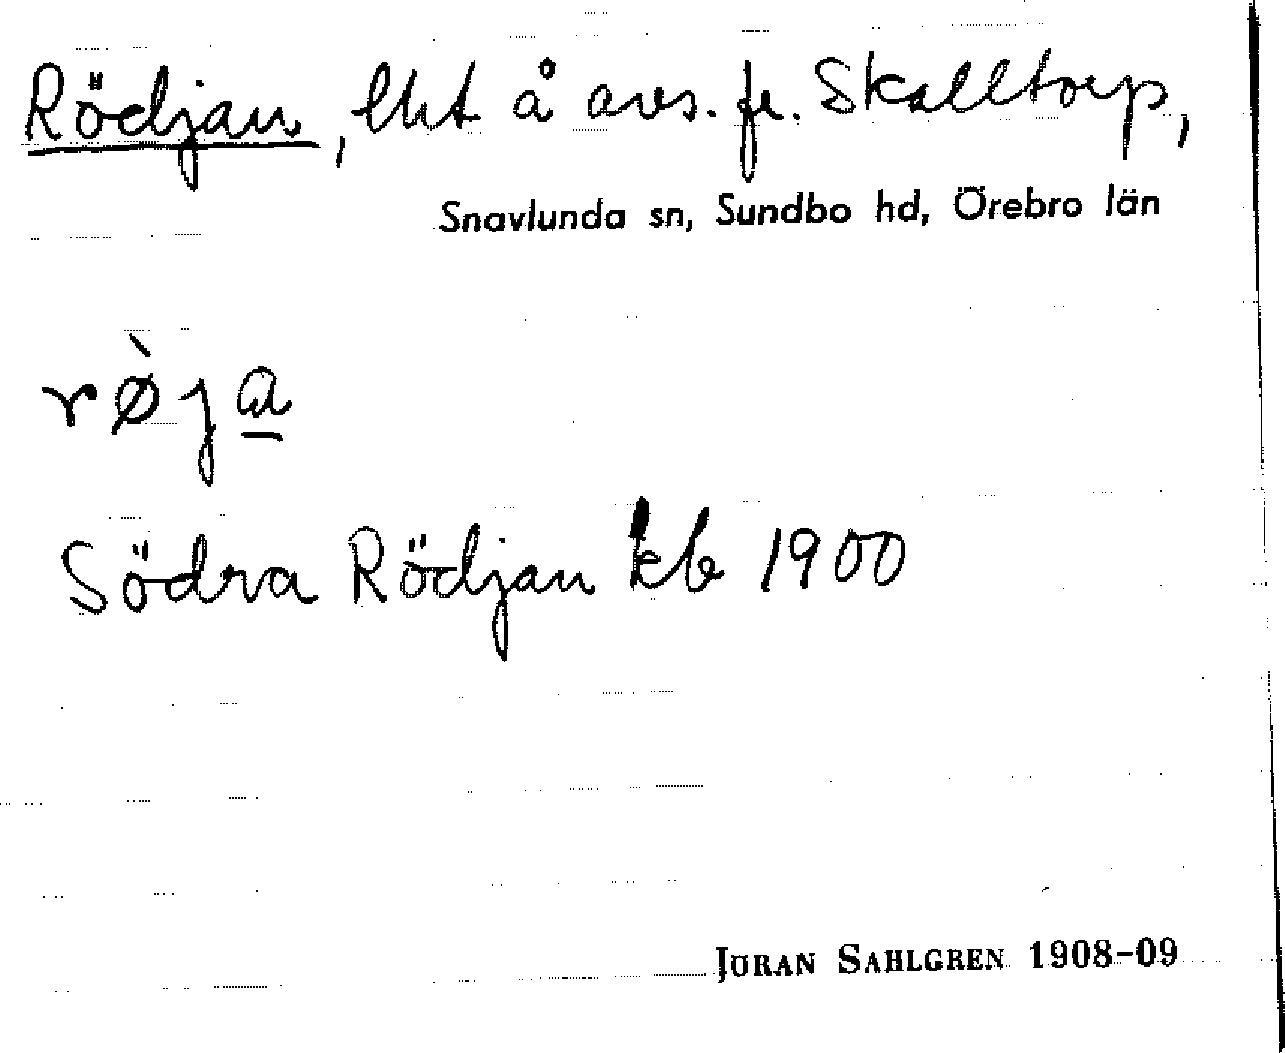 Rödjan, lht å avs. fr. Skalltorp,
Snavlunda sn, Sundbo hd, Örebro län
rø̀ja
Södra Rödjan kb 1900
JÖRAN SAHLGREN 1908-09